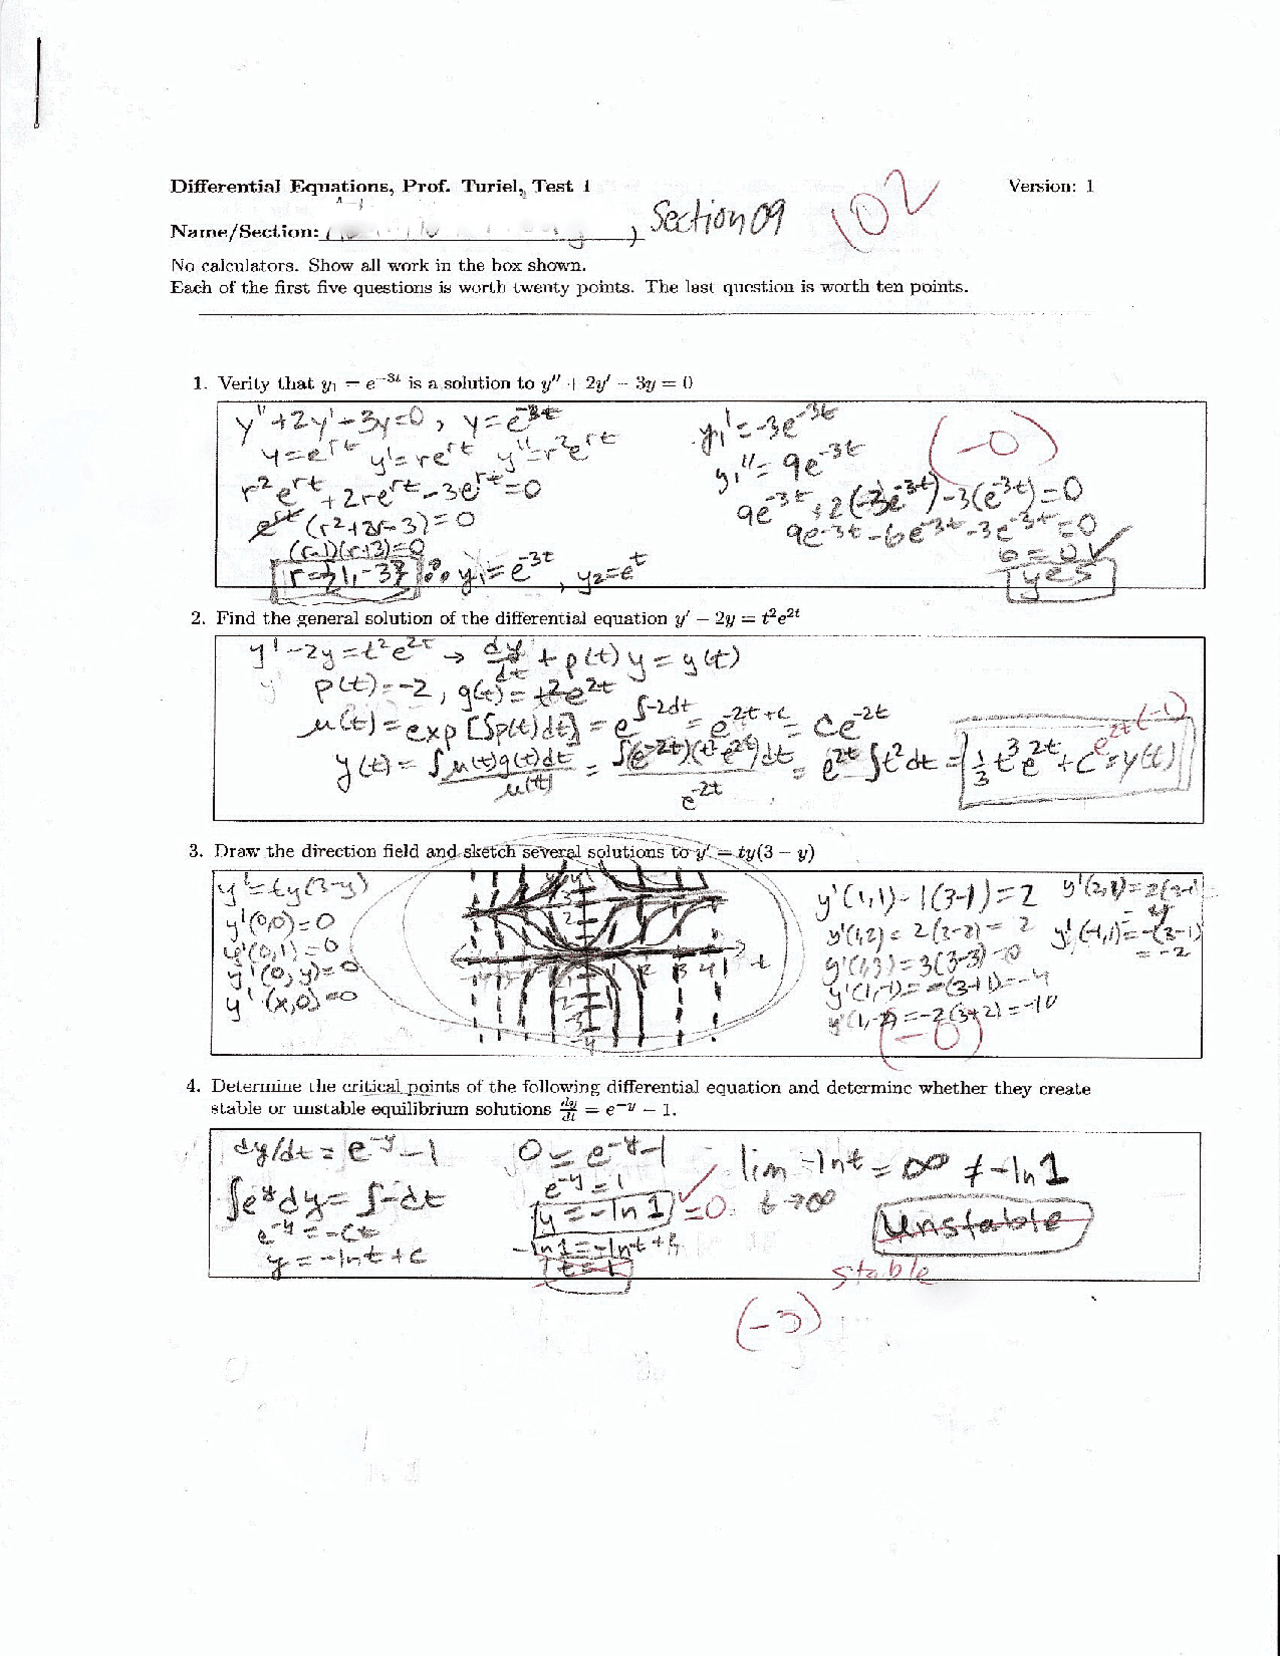 Differential Equations, Prof. Turiel, Test 1
Version: 1
102
Name/Section:
, Section 09
No calculators. Show all work in the box shown.
Each of the first five questions is worth twenty points. The last question is worth ten points.
1. Verify that y₁ = e⁻³ᵗ is a solution to y'' + 2y' − 3y = 0
y''+2y'-3y=0, y=e^-3t
y=e^rt y'=re^rt y''=r²e^rt
r²e^rt+2re^rt-3e^rt=0
e^rt(r²+2r-3)=0
(r-1)(r+3)=0
r={1,-3} ∴ y₁=e^-3t, y₂=e^t
y₁'=-3e^-3t
y₁''=9e^-3t
9e^-3t+2(-3e^-3t)-3(e^-3t)=0
9e^-3t-6e^-3t-3e^-3t=0
0=0✓
yes
(-0)
2. Find the general solution of the differential equation y' − 2y = t²e²ᵗ
y'-2y=t²e^2t → dy/dt + p(t)y=g(t)
p(t)=-2, g(t)=t²e^2t
μ(t)=exp[∫p(t)dt]=e^∫-2dt=e^-2t+c=Ce^-2t
y(t)=∫μ(t)g(t)dt/μ(t)=∫(e^-2t)(t²e^2t)dt/e^-2t=e^2t∫t²dt=1/3 t³e^2t+C e^2t=y(t)
(-1)
3. Draw the direction field and sketch several solutions to y' = ty(3 − y)
y'=ty(3-y)
y'(0,0)=0
y'(0,1)=0
y'(0,y)=0
y'(x,0)=0
y'(1,1)=1(3-1)=2
y'(1,2)=2(3-2)=2
y'(1,3)=3(3-3)=0
y'(1,-1)=-(3+1)=-4
y'(1,-2)=-2(3+2)=-10
y'(2,1)=2(3-1)
=4
y'(-1,1)=-(3-1)
=-2
(-0)
4. Determine the critical points of the following differential equation and determine whether they create
stable or unstable equilibrium solutions dy/dt = e⁻ʸ − 1.
dy/dt=e^-y-1
∫e^y dy=∫-dt
e^-y=-Ct
y=-lnt+C
0=e^-y-1
e^-y=1
y=-ln1 ✓ =0
t=1
lim -lnt=∞≠-ln1
t→∞
Unstable
stable
(-3)